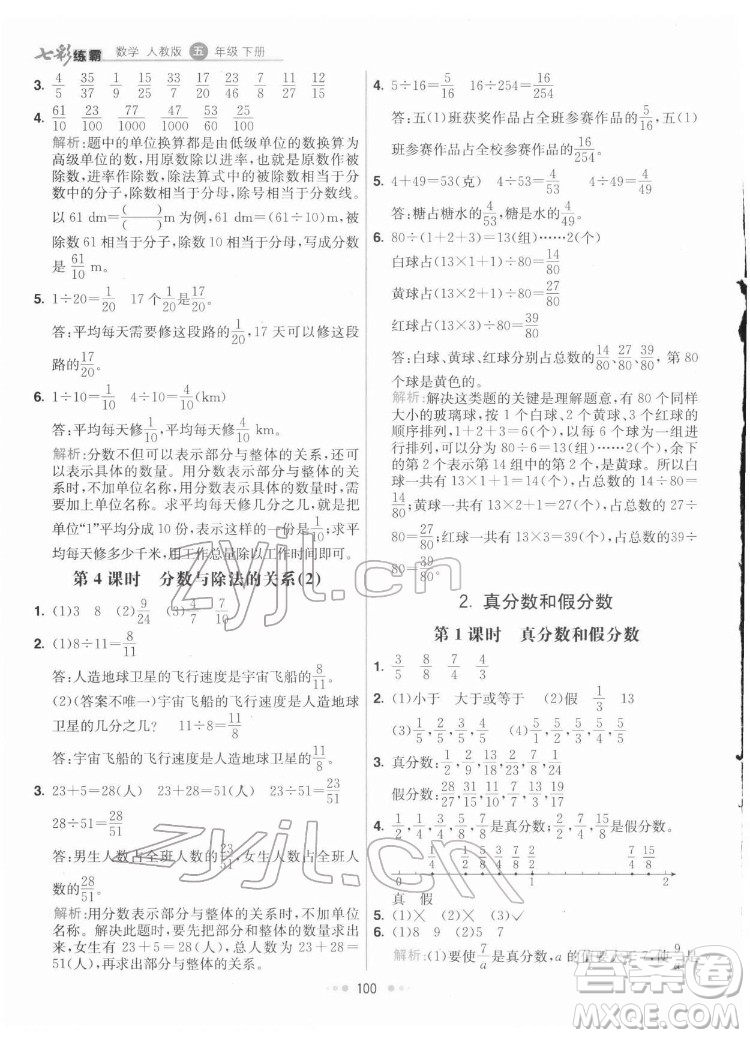 七彩练霸 数学 人教版 五 年级 下册
3. 4/5 35/37 1/19 24/25 17/7 23/24 46/8 7/11 12/27
4. 61/10 23/100 27/1000 53/60 25/100
解析:题中的单位换算都是由低级单位的数换算为
高级单位的数,用原数除以进率,也就是原数作为被
除数,进率作为除数,除法算式中的被除数相当于分
数中的分子,除数相当于分母,除号相当于分数线。
以 61 dm=( )/( )m 为例,61 dm=(61÷10)m,被
除数 61 相当于分子,除数 10 相当于分母,写成分数
是61/10 m。
5. 1÷20=1/20 17 个1/20是17/20。
答:平均每天需要修这段路的1/20,17 天可以修这段
路的17/20。
6. 1÷10=1/10 4÷10=4/10(km)
答:平均每天修1/10,平均每天修4/10 km。
解析:分数不但可以表示部分与整体的关系,还可
以表示具体的数量。用分数表示部分与整体的关
系时,不加单位名称,用分数表示具体的数量时,要
加单位名称。求平均每天修几分之几,就是把
单位“1”平均分成 10 份,表示这样的一份是1/10;求平
均每天修多少千米,用工作总量除以工作时间即可。
第 4 课时 分数与除法的关系(2)
1. (1)3 8 (2)9/24 (3)4/7 7/10
2. (1)8÷11=8/11
答:人造地球卫星的飞行速度是宇宙飞船的8/11。
(2)(答案不唯一)宇宙飞船的飞行速度是人造地球
卫星的几分之几? 11÷8=11/8
答:宇宙飞船的飞行速度是人造地球卫星的11/8。
3. 23+5=28(人) 23+28=51(人) 23÷51=23/51
28÷51=28/51
答:男生人数占全班人数的23/51,女生人数占全班人
数的28/51。
解析:用分数表示部分与整体的关系时,用部分除以
整体。解决此题时,要先把部分的数量与总数量
求出来。女生有 23+5=28(人),总人数有 23+28=
51(人),再求出部分与总人数的关系。
4. 5÷16=5/16 16÷254=16/254
答:五(1)班获奖作品占全班参赛作品的5/16,五(1)
班参赛作品占全校参赛作品的16/254。
5. 4+49=53(克) 4÷53=4/53 4÷49=4/49
答:糖占糖水的4/53,糖是水的4/49。
6. 80÷(1+2+3)=13(组)……2(个)
白球占(13×1+1)÷80=14/80
黄球占(13×2+1)÷80=27/80
红球占(13×3)÷80=39/80
答:白球、黄球、红球分别占总数的14/80、27/80、39/80,第 80
个球是黄色的。
解析:解决这类题的关键是理解题意,有 80 个同样
大小的玻璃球,按 1 个白球、2 个黄球、3 个红球的
顺序排列,1+2+3=6(个),可以把 6 个球为一组进
行周期排列。80÷6=13(组)……2(个),说明第 80
个球是第 14 组中的第 2 个,是黄球。所以
白球一共有 13×1+1=14(个),占总数的 14÷80=
14/80;黄球一共有 13×2+1=27(个),占总数的 27÷
80=27/80;红球一共有 13×3=39(个),占总数的39÷
80=39/80。
2. 真分数和假分数
第 1 课时 真分数和假分数
1. 3/5 8/8 7/4 4/3
2. (1)小于 大于或等于 (2)假 1/3 13
(3)1/5 2/5 3/5 4/5 (4)5/1 5/2 5/3 5/4 5/5
3. 真分数:1/2 2/9 13/18 2/7 7/8 13/24
假分数:28/27 31/15 9/7 8/8 10/9
4. 1/2,1/4,3/8,2/4,7/8是真分数;7/4,15/8是假分数。
1/4 3/8 1/2 2/4 7/8 7/4 15/8
0 1 2
真 假
5. (1)× (2)× (3)✓
6. (1)8 (2)9 (3)5 7
解析:(1)要使7/a是真分数,a
100
zyjl.cn
zyjl.cn
答案圈
MXQE.COM